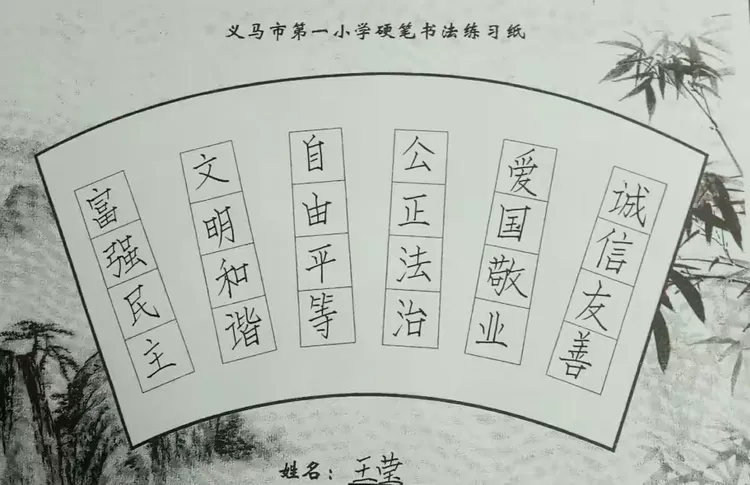 义马市第一小学硬笔书法练习纸
富强民主
文明和谐
自由平等
公正法治
爱国敬业
诚信友善
姓名：王莹